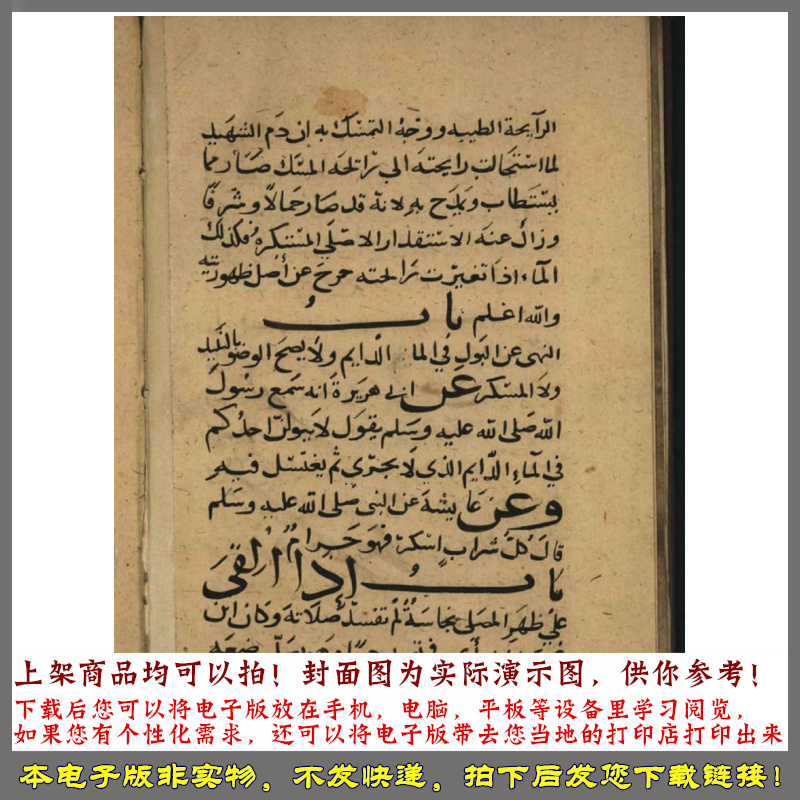 الرايحة الطيبه ووجه التمسك به ان دم الشهيد
لما استحالت رايحته الى رايحة المسك صار مما
يستطاب ويمدح به لانه قد صار جمالا وشرفا
وزال عنه الاستقذار الاصلي المستنكره فكذلك
الماء اذا تغيرت رايحته خرج عن اصل طهوريته
والله اعلم باب
النهى عن البول في الماء الدايم ولا يصح الوضو بالنبيد
ولا المسكر عن ابي هريرة انه سمع رسول
الله صلى الله عليه وسلم يقول لا يبولن احدكم
في الماء الدايم الذي لا يجري ثم يغتسل فيه
وعن عايشة عن النبى صلى الله عليه وسلم
قال كل شراب اسكر فهو حرام
باب اذا القى
على ظهر المصلى نجاسة لم تفسد صلاته وكان ابن
上架商品均可以拍！封面图为实际演示图，供你参考！
下载后您可以将电子版放在手机，电脑，平板等设备里学习阅览，
如果您有个性化需求，还可以将电子版带去您当地的打印店打印出来
本电子版非实物，不发快递，拍下后发您下载链接！